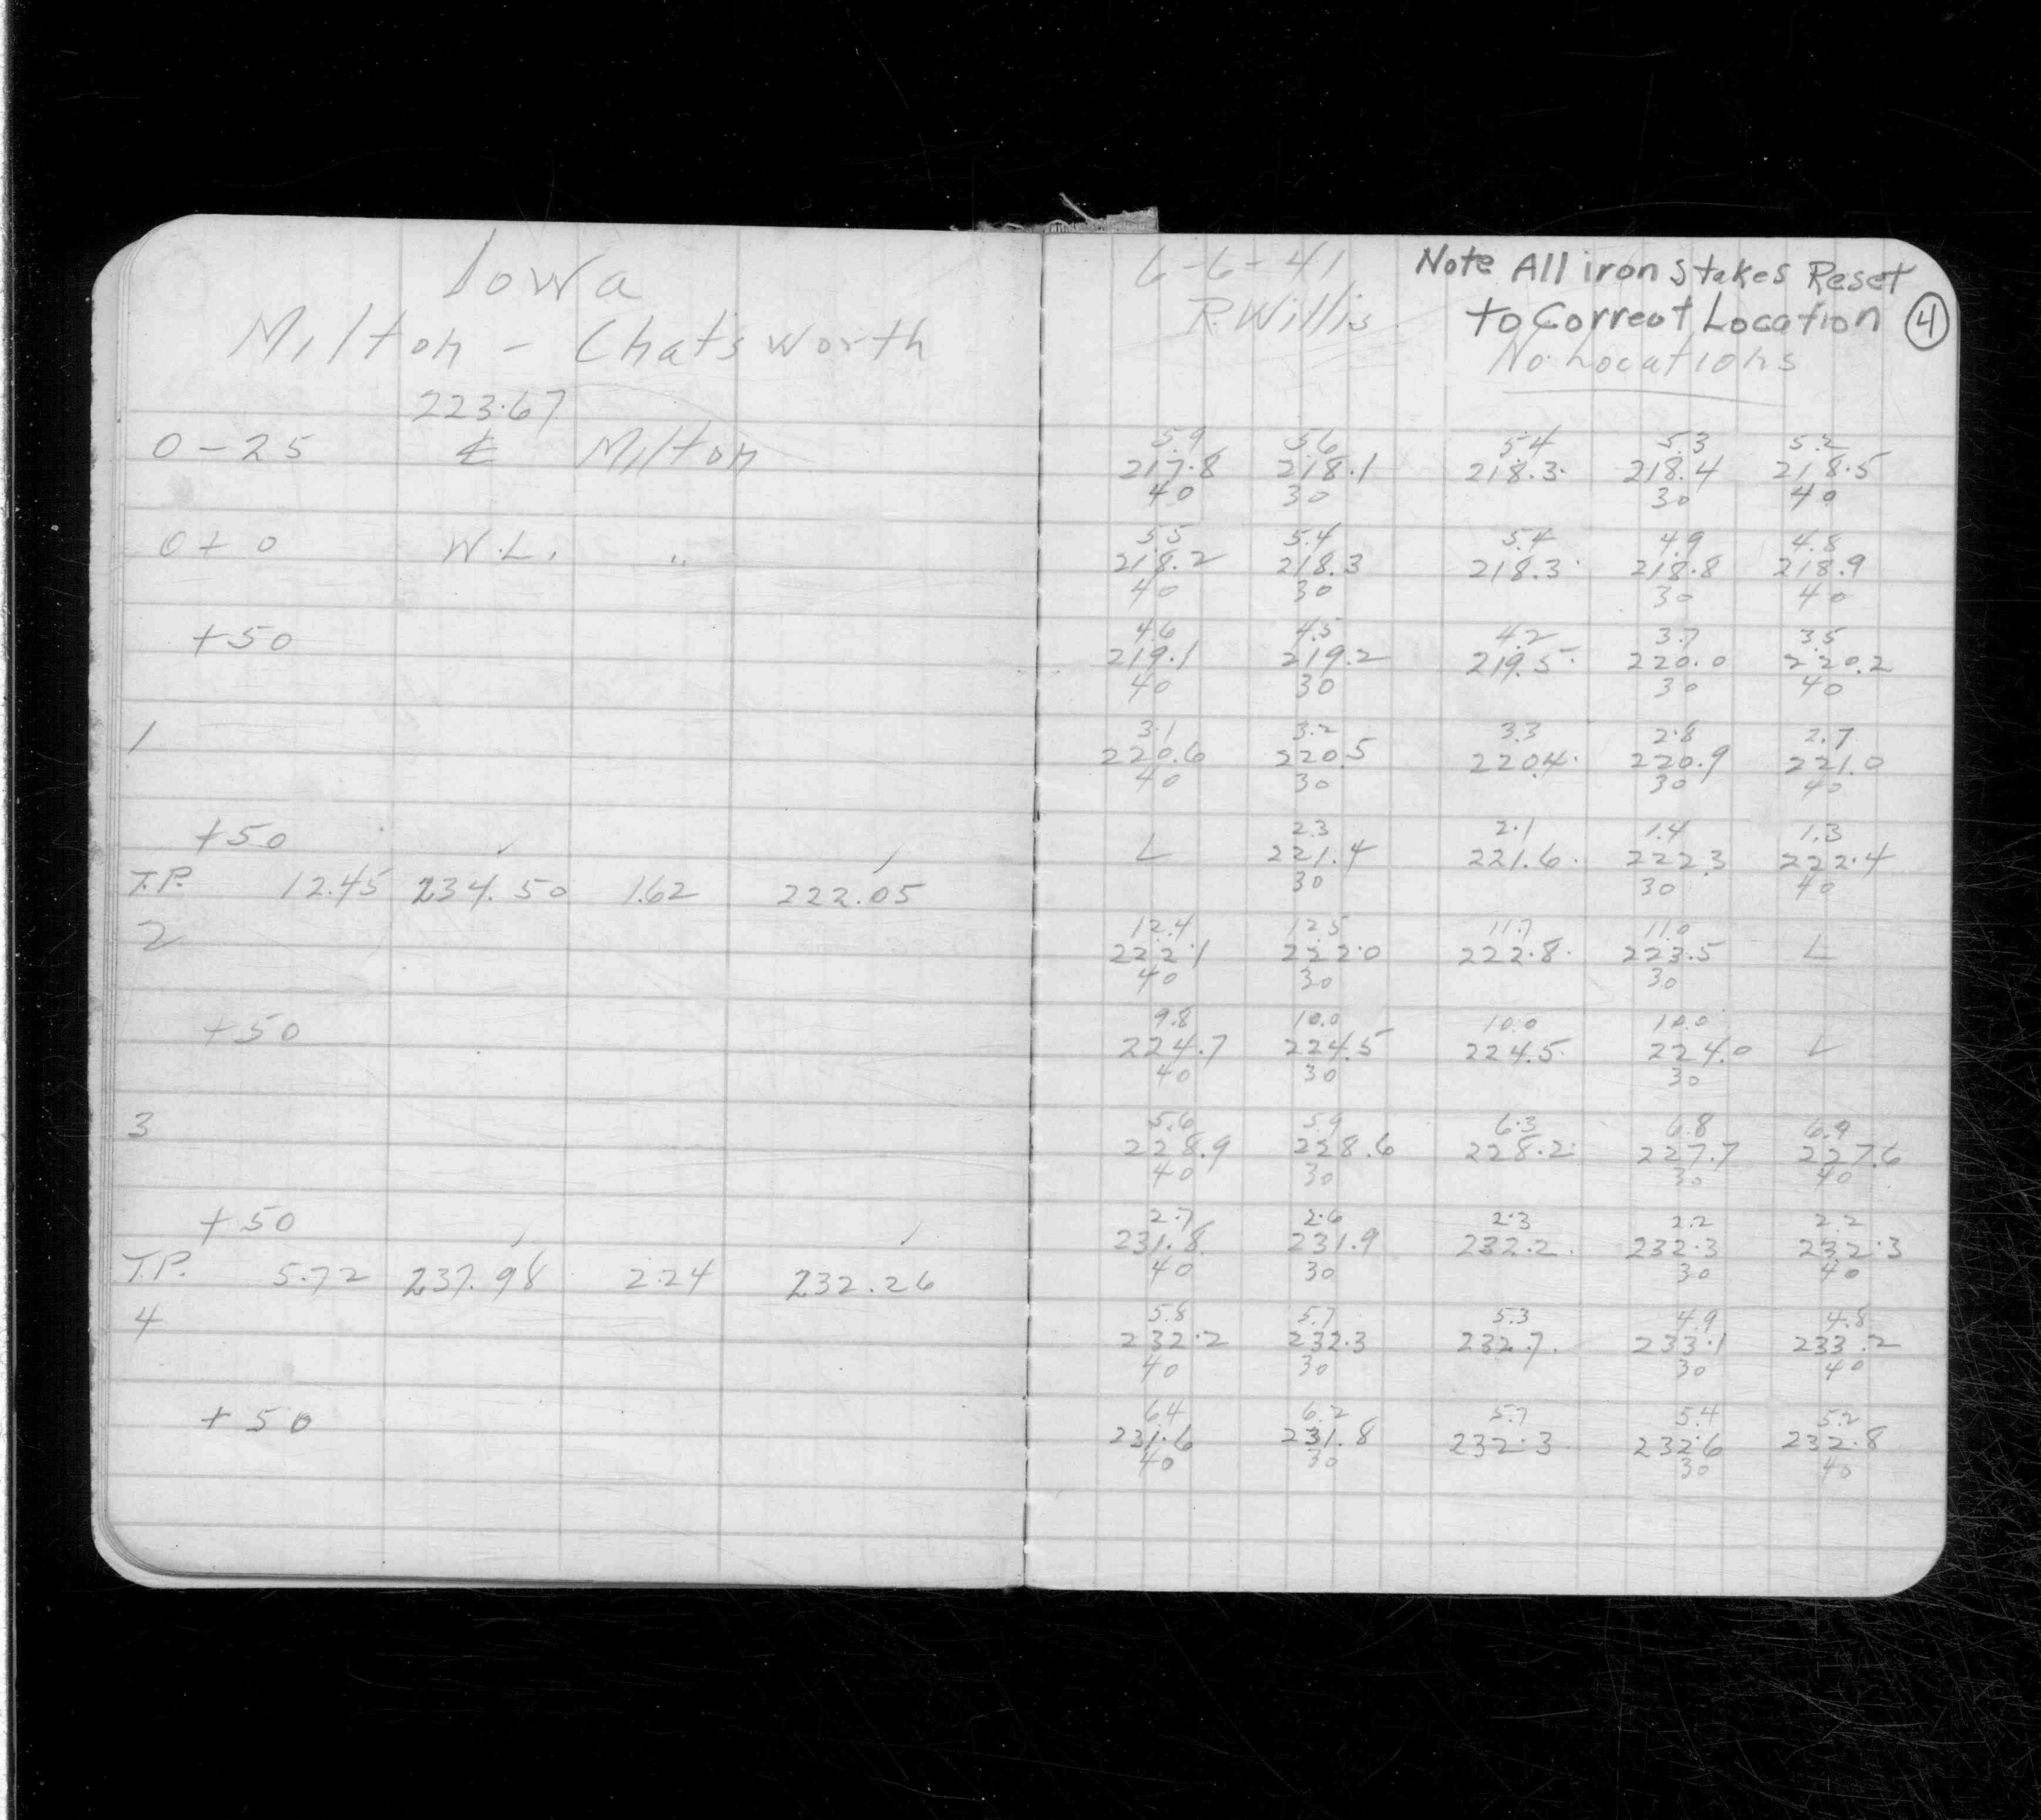 Iowa
Milton - Chatsworth
223.67
0-25 ℄ Milton
0+0 W.L. "
+50
1
+50
T.P. 12.45 234.50 1.62 222.05
2
+50
3
+50
T.P. 5.72 237.98 2.24 232.26
4
+50
6-6-41 Note All iron stakes Reset
R. Willis to Correct Location 4
No Locations
5.9 5.6 5.4 5.3 5.2
217.8 218.1 218.3 218.4 218.5
40 30 30 40
5.5 5.4 5.4 4.9 4.8
218.2 218.3 218.3 218.8 218.9
40 30 30 40
4.6 4.5 4.2 3.7 3.5
219.1 219.2 219.5 220.0 220.2
40 30 30 40
3.1 3.2 3.3 2.8 2.7
220.6 220.5 220.4 220.9 221.0
40 30 30 40
2.3 2.1 1.4 1.3
L 221.4 221.6 222.3 222.4
30 30 40
12.4 12.5 11.7 11.0
222.1 222.0 222.8 223.5 L
40 30 30
9.8 10.0 10.0 10.0
224.7 224.5 224.5 224.0 L
40 30 30
5.6 5.9 6.3 6.8 6.9
228.9 228.6 228.2 227.7 227.6
40 30 30 40
2.7 2.6 2.3 2.2 2.2
231.8 231.9 232.2 232.3 232.3
40 30 30 40
5.8 5.7 5.3 4.9 4.8
232.2 232.3 232.7 233.1 233.2
40 30 30 40
6.4 6.2 5.7 5.4 5.2
231.6 231.8 232.3 232.6 232.8
40 30 30 40